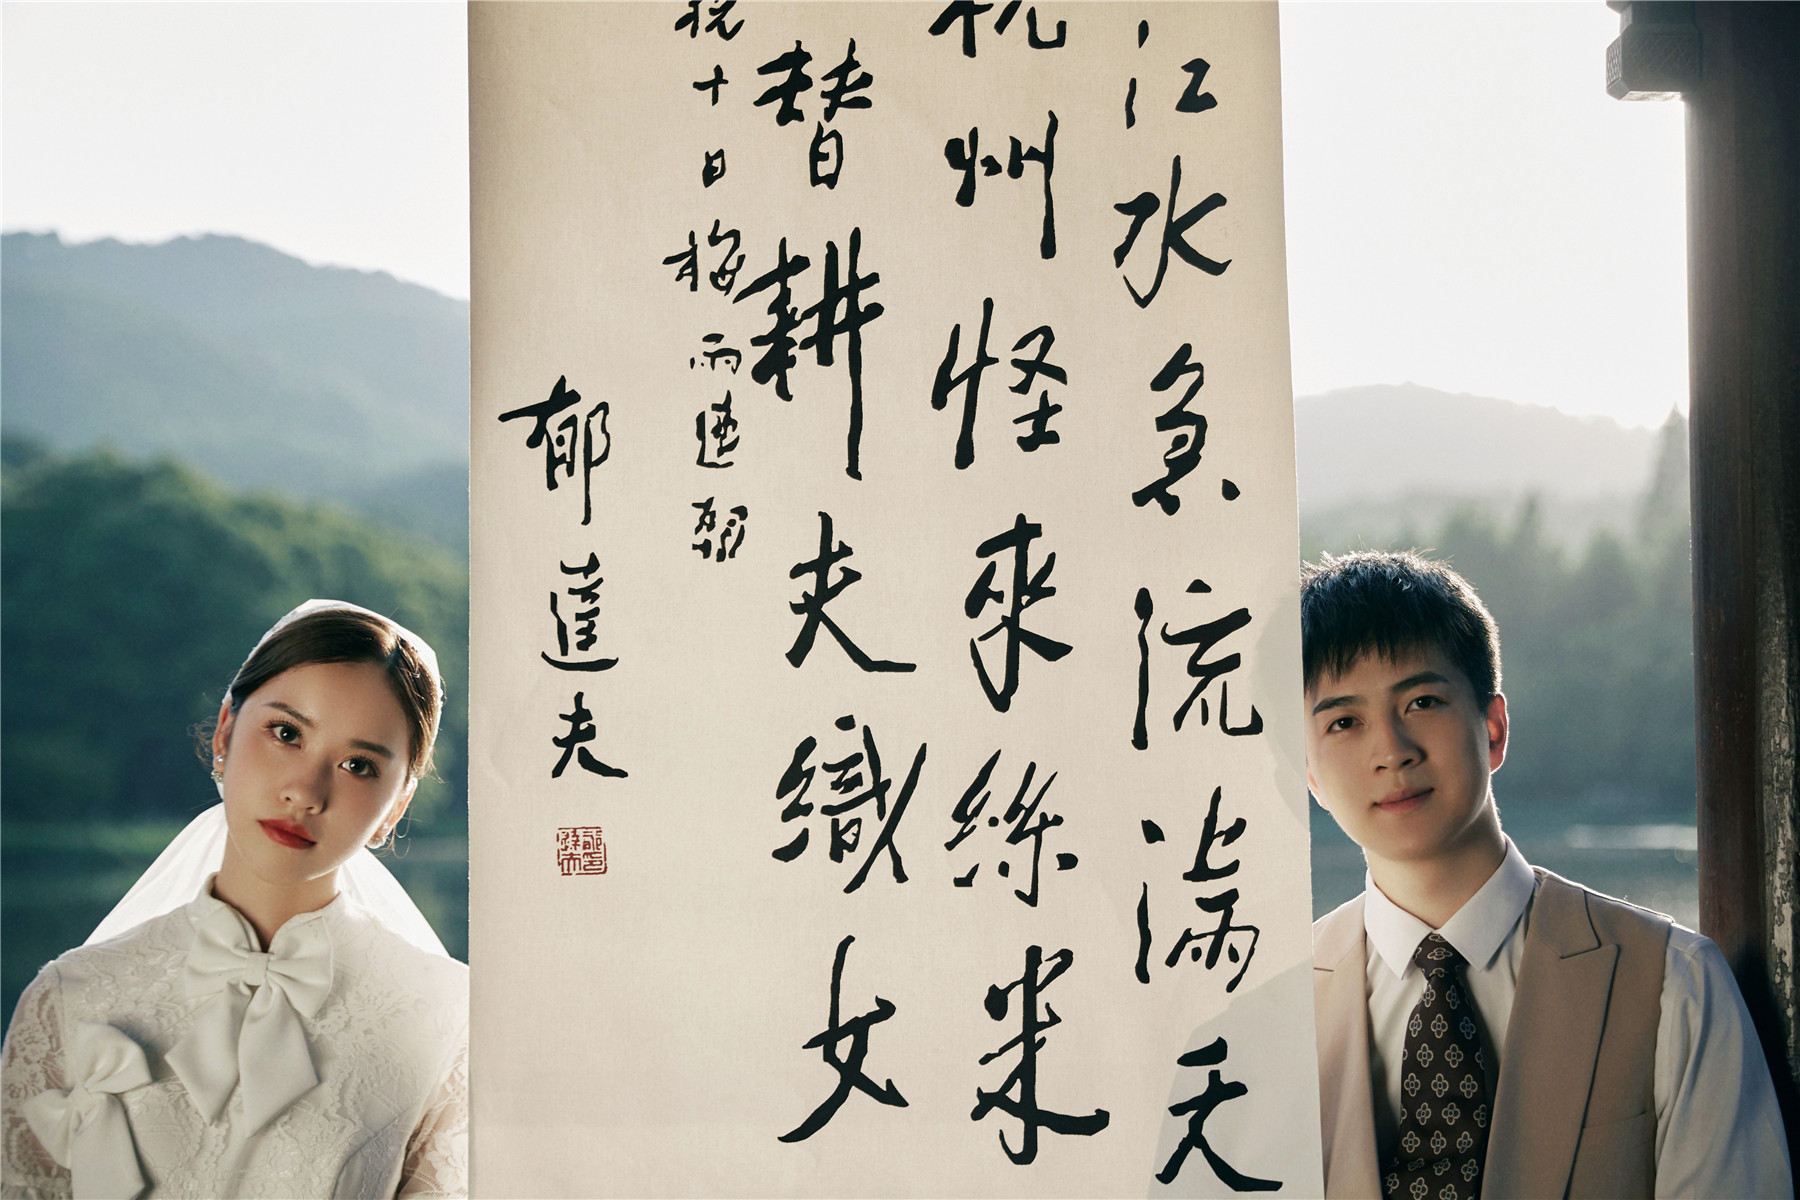 江水急流满天
杭州怪来絲米
替耕夫織女
十日梅雨連朝
郁達夫